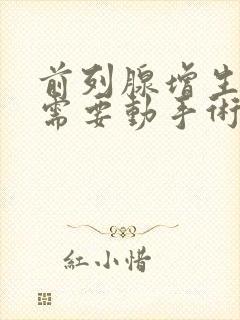 前列腺增生
需要動手術
紅小惜